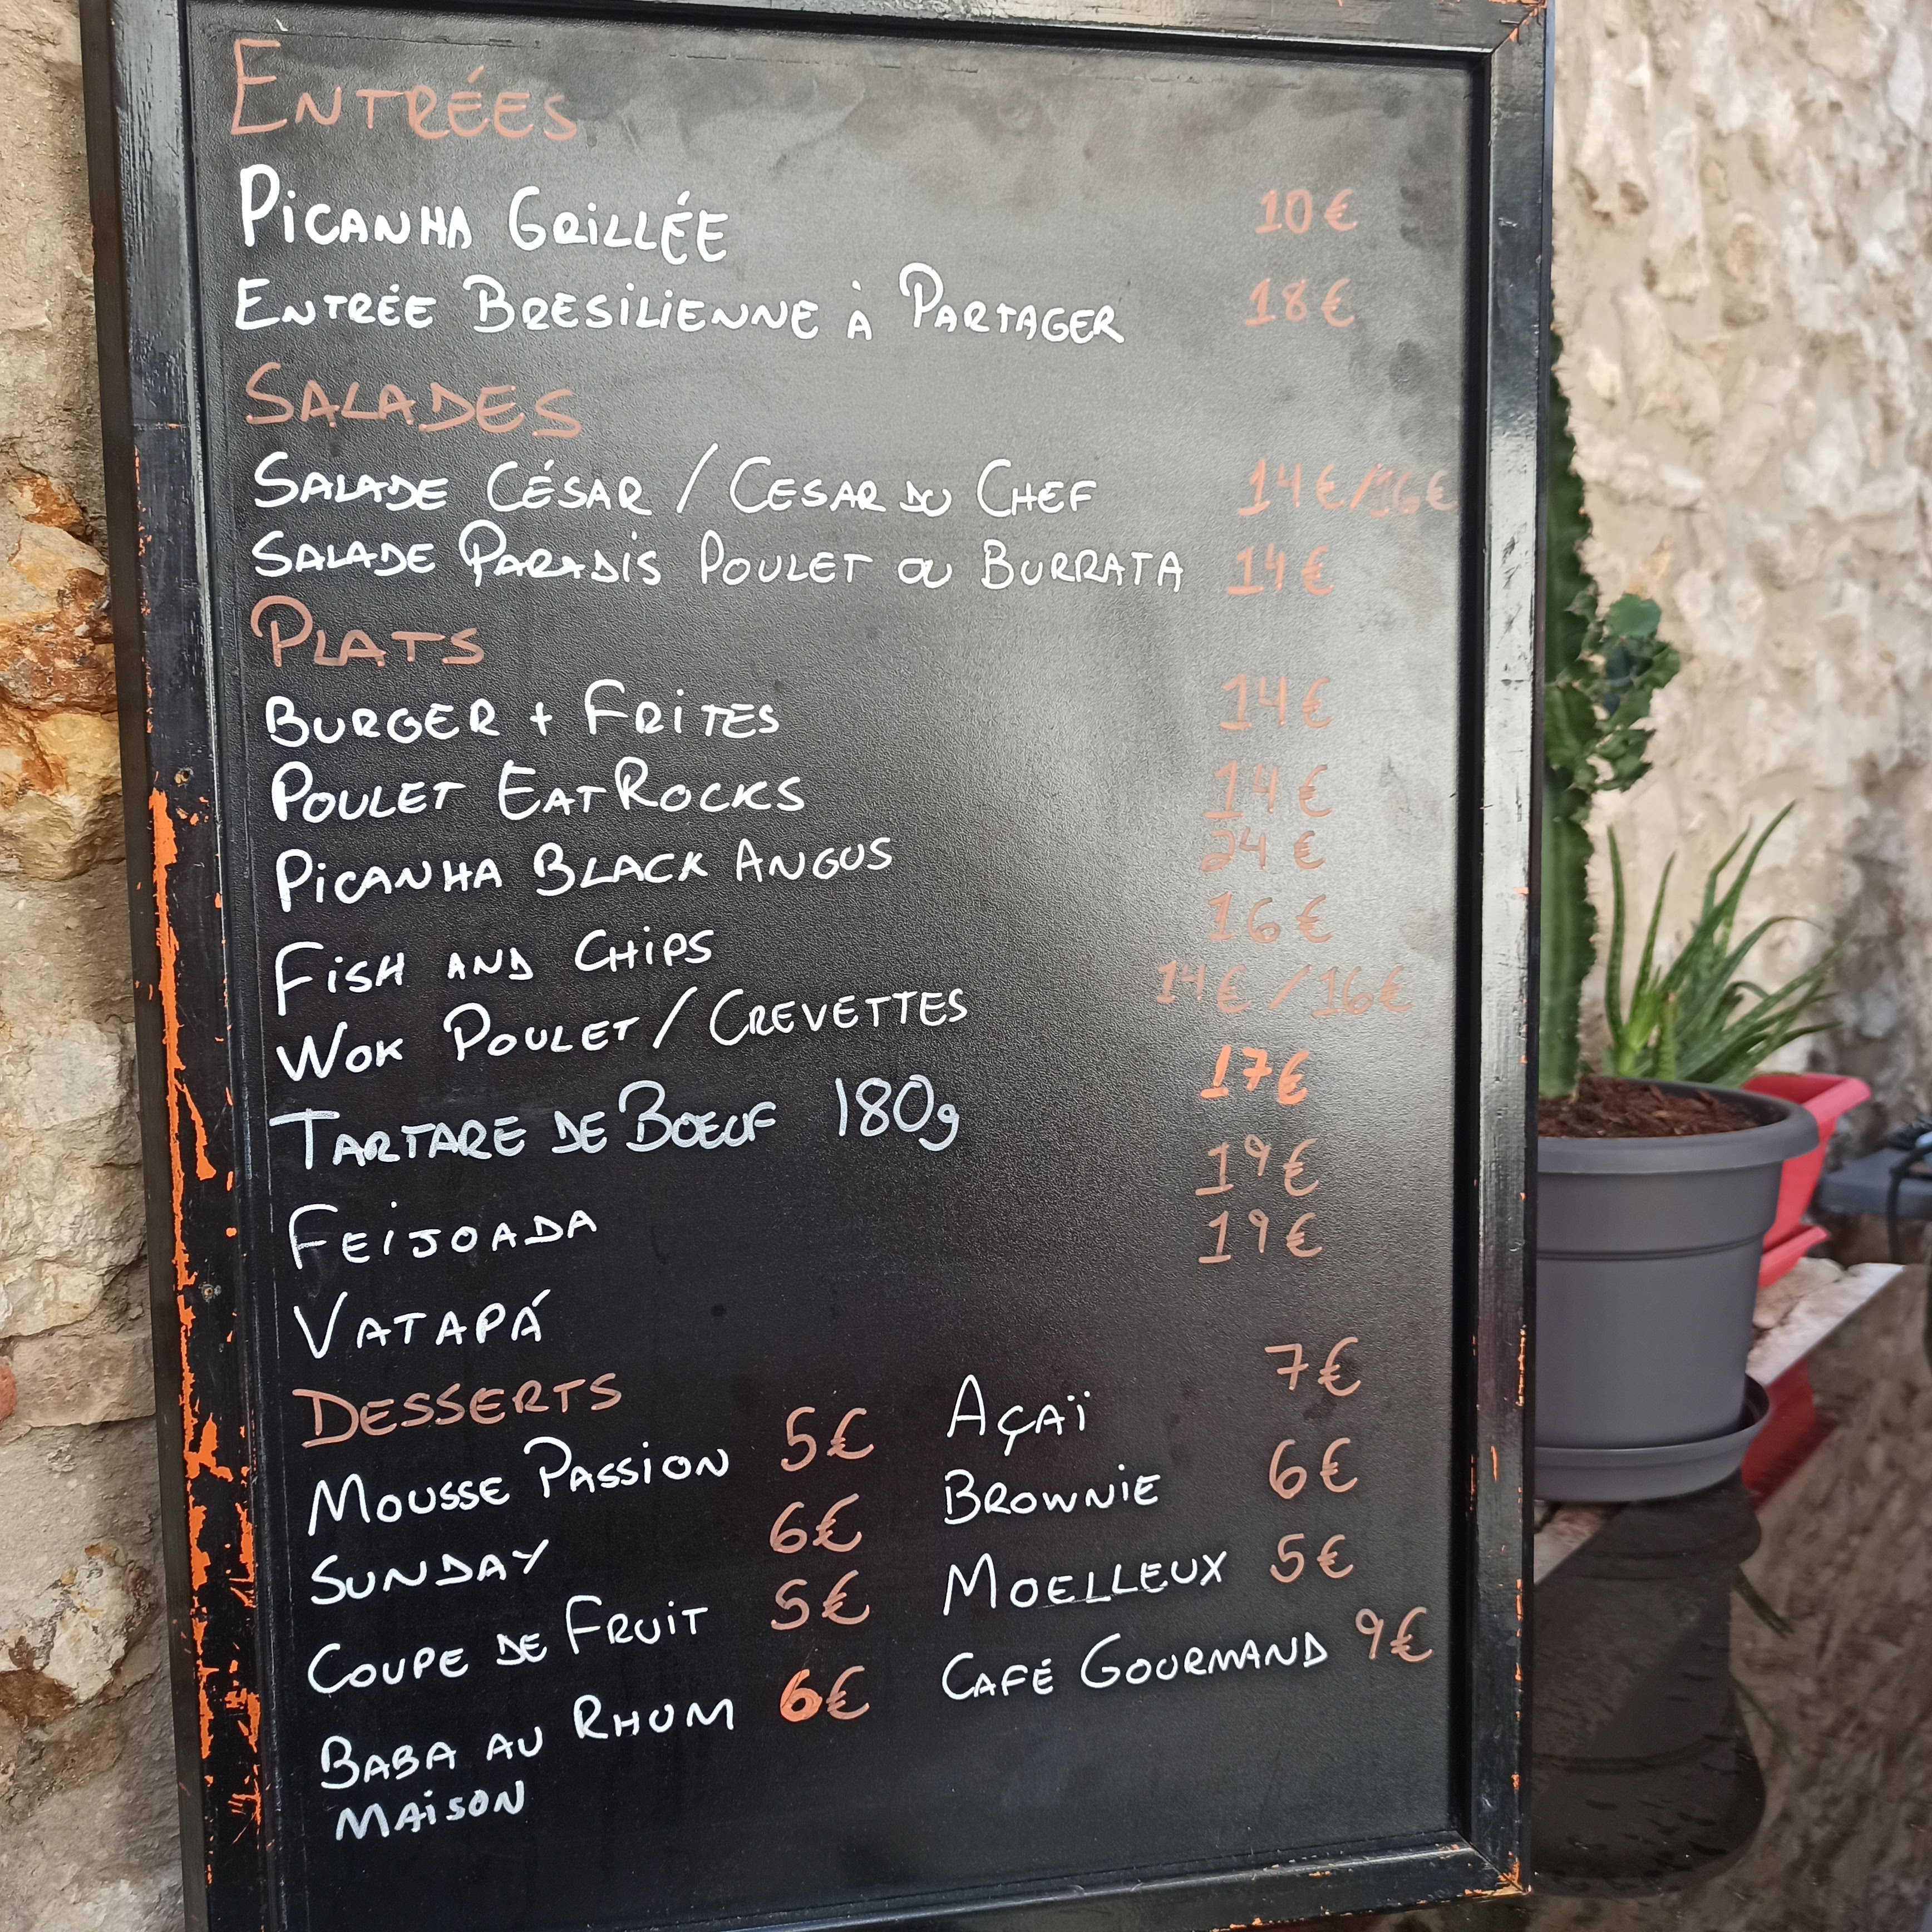 ENTRÉES
PICANHA GRILLÉE 10€
ENTRÉE BRESILIENNE À PARTAGER 18€
SALADES
SALADE CÉSAR / CESAR DU CHEF 14€/16€
SALADE PARADIS POULET OU BURRATA 14€
PLATS
BURGER + FRITES 14€
POULET EATROCKS 14€
PICANHA BLACK ANGUS 24€
FISH AND CHIPS 16€
WOK POULET / CREVETTES 14€/16€
TARTARE DE BOEUF 180g 17€
FEIJOADA 19€
VATAPÁ 19€
DESSERTS
MOUSSE PASSION 5€ AÇAÏ 7€
SUNDAY 6€ BROWNIE 6€
COUPE DE FRUIT 5€ MOELLEUX 5€
BABA AU RHUM 6€ CAFÉ GOURMAND 9€
MAISON